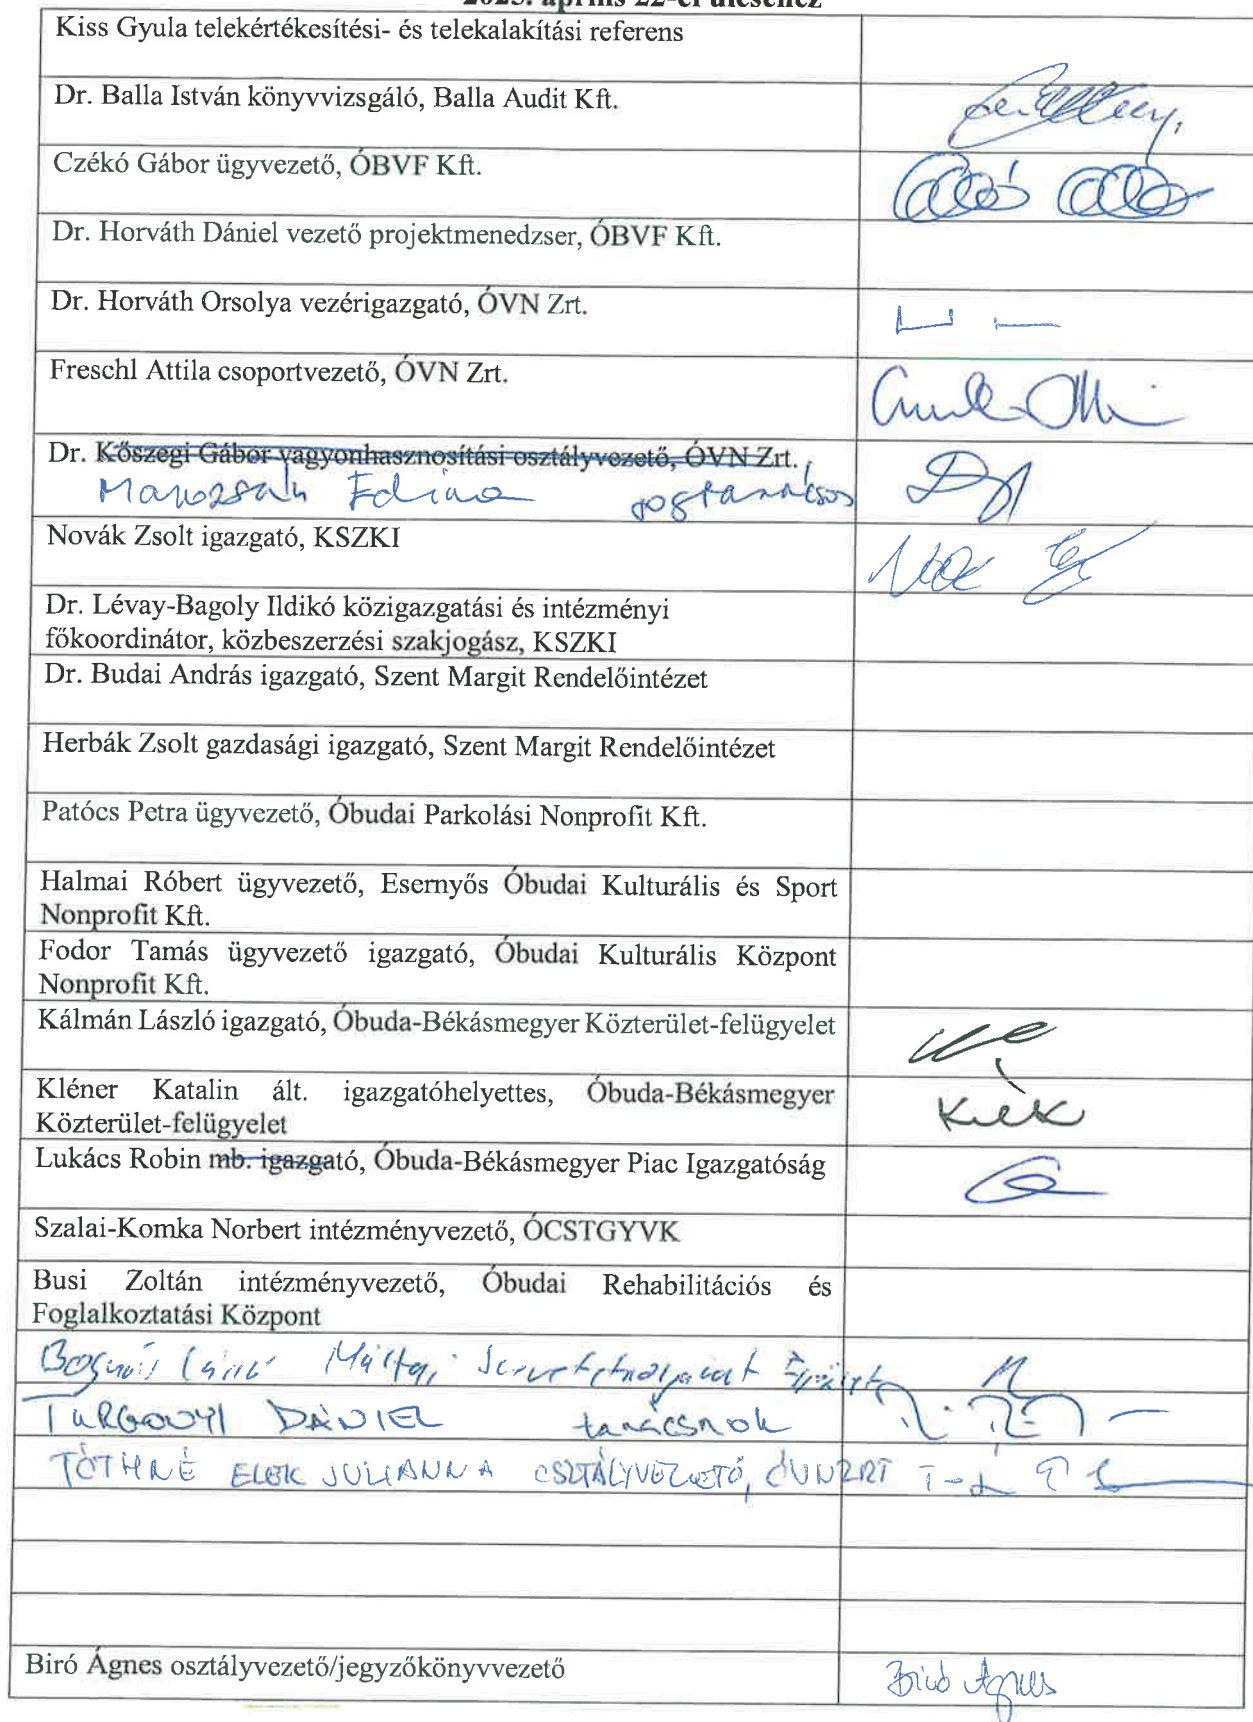 2025. április 22-ei üléséhez
Kiss Gyula telekértékesítési- és telekalakítási referens
Dr. Balla István könyvvizsgáló, Balla Audit Kft.
Czékó Gábor ügyvezető, ÓBVF Kft.
Dr. Horváth Dániel vezető projektmenedzser, ÓBVF Kft.
Dr. Horváth Orsolya vezérigazgató, ÓVN Zrt.
Freschl Attila csoportvezető, ÓVN Zrt.
Dr. Kőszegi Gábor vagyonhasznosítási osztályvezető, ÓVN Zrt.,
Edina jogtanácsos
Novák Zsolt igazgató, KSZKI
Dr. Lévay-Bagoly Ildikó közigazgatási és intézményi
főkoordinátor, közbeszerzési szakjogász, KSZKI
Dr. Budai András igazgató, Szent Margit Rendelőintézet
Herbák Zsolt gazdasági igazgató, Szent Margit Rendelőintézet
Patócs Petra ügyvezető, Óbudai Parkolási Nonprofit Kft.
Halmai Róbert ügyvezető, Esernyős Óbudai Kulturális és Sport
Nonprofit Kft.
Fodor Tamás ügyvezető igazgató, Óbudai Kulturális Központ
Nonprofit Kft.
Kálmán László igazgató, Óbuda-Békásmegyer Közterület-felügyelet
Kléner Katalin ált. igazgatóhelyettes, Óbuda-Békásmegyer
Közterület-felügyelet
Lukács Robin mb. igazgató, Óbuda-Békásmegyer Piac Igazgatóság
Szalai-Komka Norbert intézményvezető, ÓCSTGYVK
Busi Zoltán intézményvezető, Óbudai Rehabilitációs és
Foglalkoztatási Központ
Máltai Szeretetszolgálat
TURGONYI DÁNIEL tanácsnok
TÓTHNÉ ELEK JULIANNA OSZTÁLYVEZETŐ, ÓVNZRT
Biró Ágnes osztályvezető/jegyzőkönyvvezető
Biró Ágnes